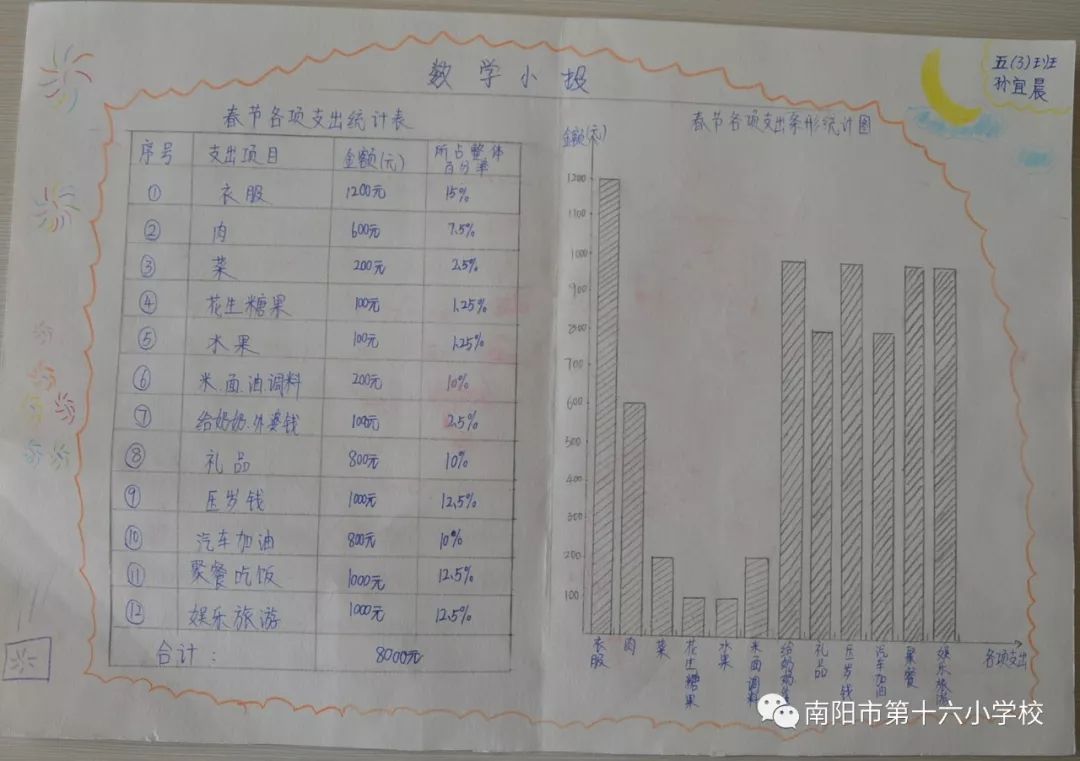 数学小报
五(3)班
孙宜晨
春节各项支出统计表
序号 支出项目 金额(元) 所占整体百分率
① 衣服 1200元 15%
② 肉 600元 7.5%
③ 菜 200元 2.5%
④ 花生糖果 100元 1.25%
⑤ 水果 100元 1.25%
⑥ 米.面.油.调料 200元 10%
⑦ 给奶奶.外婆钱 1000元 2.5%
⑧ 礼品 800元 10%
⑨ 压岁钱 1000元 12.5%
⑩ 汽车加油 800元 10%
⑪ 聚餐吃饭 1000元 12.5%
⑫ 娱乐旅游 1000元 12.5%
合计: 8000元
春节各项支出条形统计图
金额(元)
1200
1100
1000
900
800
700
600
500
400
300
200
100
衣服
肉
菜
花生糖果
水果
米面调料
给奶奶钱
礼品
压岁钱
汽车加油
聚餐
娱乐旅游
各项支出
南阳市第十六小学校